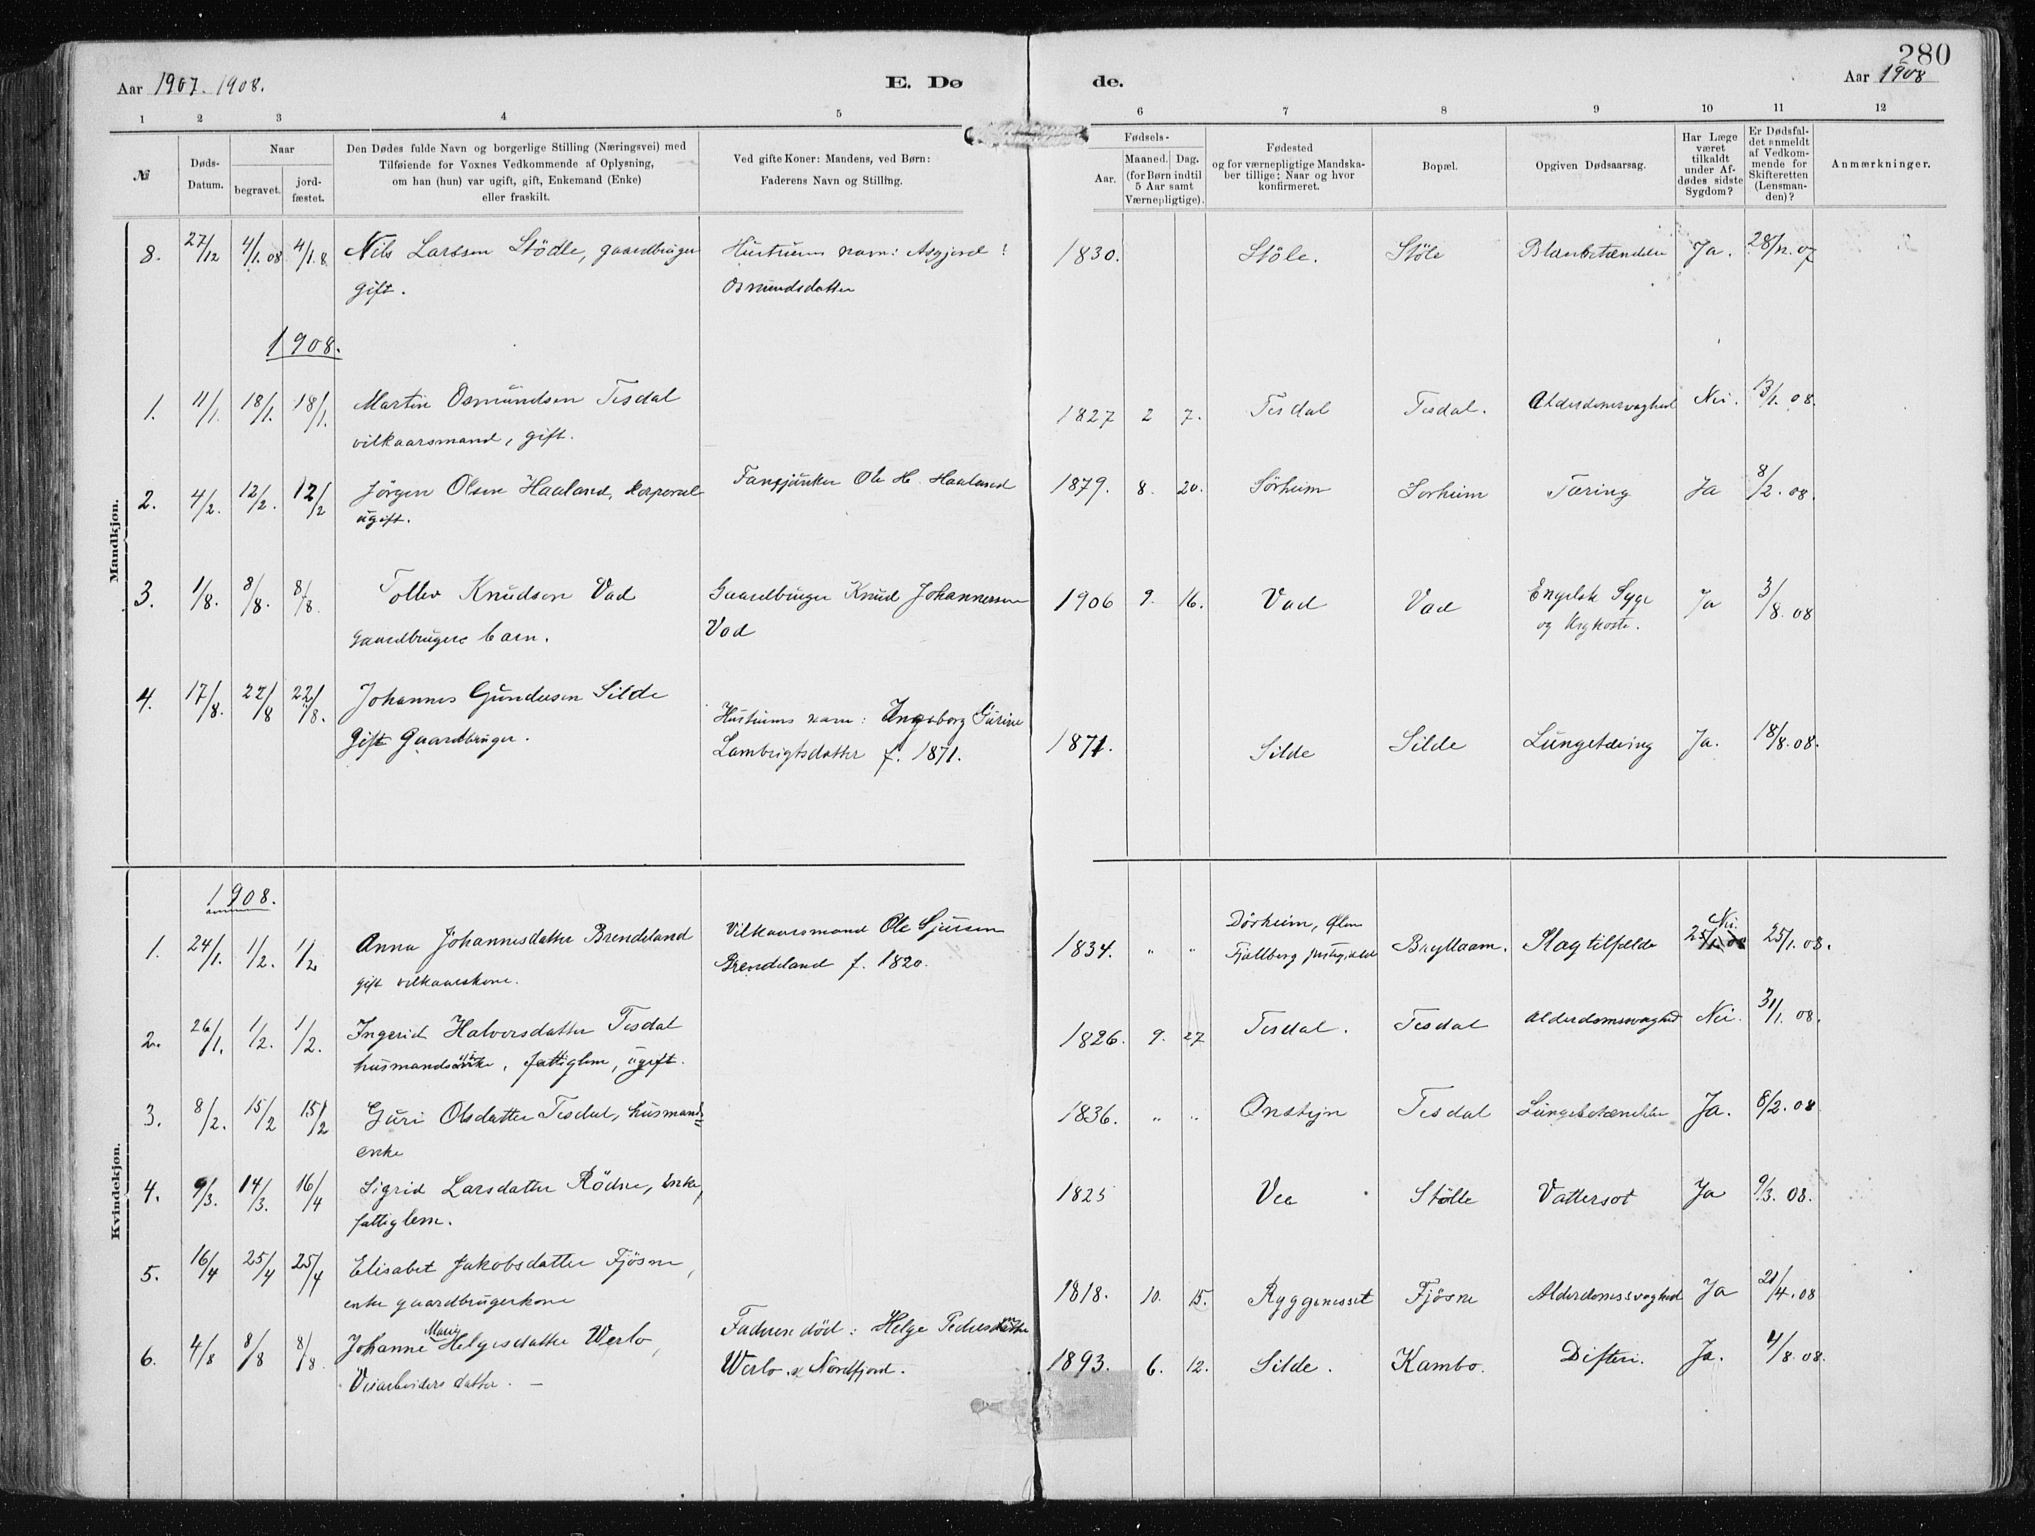 280
Aar 1907. 1908.
E. Dø
de.
Aar 1908
1 2 3 4 5 6 7 8 9 10 11 12
№
Døds-
Datum.
Naar
begravet.
jord-
fæstet.
Den Dødes fulde Navn og borgerlige Stilling (Næringsvei) med
Tilføiende for Voxnes Vedkommende af Oplysning,
om han (hun) var ugift, gift, Enkemand (Enke)
eller fraskilt.
Ved gifte Koner: Mandens, ved Børn:
Faderens Navn og Stilling.
Fødsels-
Aar.
Maaned. Dag.
(for Børn indtil
5 Aar samt
Værnepligtige).
Fødested
og for værnepligtige Mandska-
ber tillige: Naar og hvor
konfirmeret.
Bopæl.
Opgiven Dødsaarsag.
Har Læge
været
tilkaldt
under Af-
dødes sidste
Sygdom?
Er Dødsfal-
det anmeldt
af Vedkom-
mende for
Skifteretten
(Lensman-
den)?
Anmærkninger.
Mandkjøn.
8. 27/12 4/1.08 4/1.8 Nils Larsen Stödle, gaardbruger Hustruens navn: Asgjerd ! 1830. Stöle. Stöle Blærebetændelse Ja. 28/12.07
gift. Osmundsdatter
1908.
1. 11/1. 18/1. 18/1. Martin Osmundsen Tesdal 1827 2 7. Tesdal Tesdal. Alderdomsvaghed Nei. 13/1.08.
vilkaarsmand, gift.
2. 4/2. 12/2. 12/2 Jörgen Olsen Haaland, korporal Fanejunker Ole H. Haaland 1879. 8. 20. Sörheim Sorheim Tæring Ja 8/2.08.
ugift.
3. 1/8. 8/8. 8/8. Tollev Knudsen Vad Gaardbruger Knud Johannessen 1906 9. 16. Vad Vad Engelsk Syge Ja 3/8.08
gaardbrugers barn. Vad og Kighoste.
4. 17/8. 22/8 22/8. Johannes Gundersen Silde Hustruens navn: Ingeborg Gurine 1871. Silde Silde Lungetæring Ja. 18/8.08.
Gift Gaardbruger. Lambrigtsdatter f. 1871.
Kvindekjøn.
1908.
1. 24/1. 1/2. 1/2 Anna Johannesdatter Brendeland Vilkaarsmand Ole Sjursen 1834. " " Dörheim, Ølen Bryllaam. Slagtilfælde Nei. 25/1.08.
gift vilkaarskone. Brendeland f. 1820. Fjellberg
2. 26/1. 1/2. 1/2. Ingerid Halvorsdatter Tesdal 1826. 9. 27 Tesdal. Tesdal Alderdomssvaghed Nei. 31/1.08.
husmandsenke, fattiglem, ugift.
3. 8/2. 15/2 15/2 Guri Olsdatter Tesdal, husmands= 1836. " " Onstejn Tesdal Lungebetændelse Ja. 8/2.08.
enke
4. 9/3. 14/3. 16/4 Sigrid Larsdatter Rödne, Enke, 1825 Vee Stölle Vattersot Ja 9/3.08.
fattiglem.
5. 16/4 25/4 25/4 Elisabet Jakobsdatter Fjösne, 1818. 10. 15. Ryggenesset Fjösne Alderdomssvaghed Ja 21/4.08
enke gaardbrugerkone
6. 4/8 8/8 8/8. Johanne Marie Helgesdatter Werlo, Faderen död: Helge Pedersen 1893. 6. 12. Silde. Kambo. Difteri. Ja. 4/8.08.
Veiarbeiders datter. — Werlo. Nordfjord.